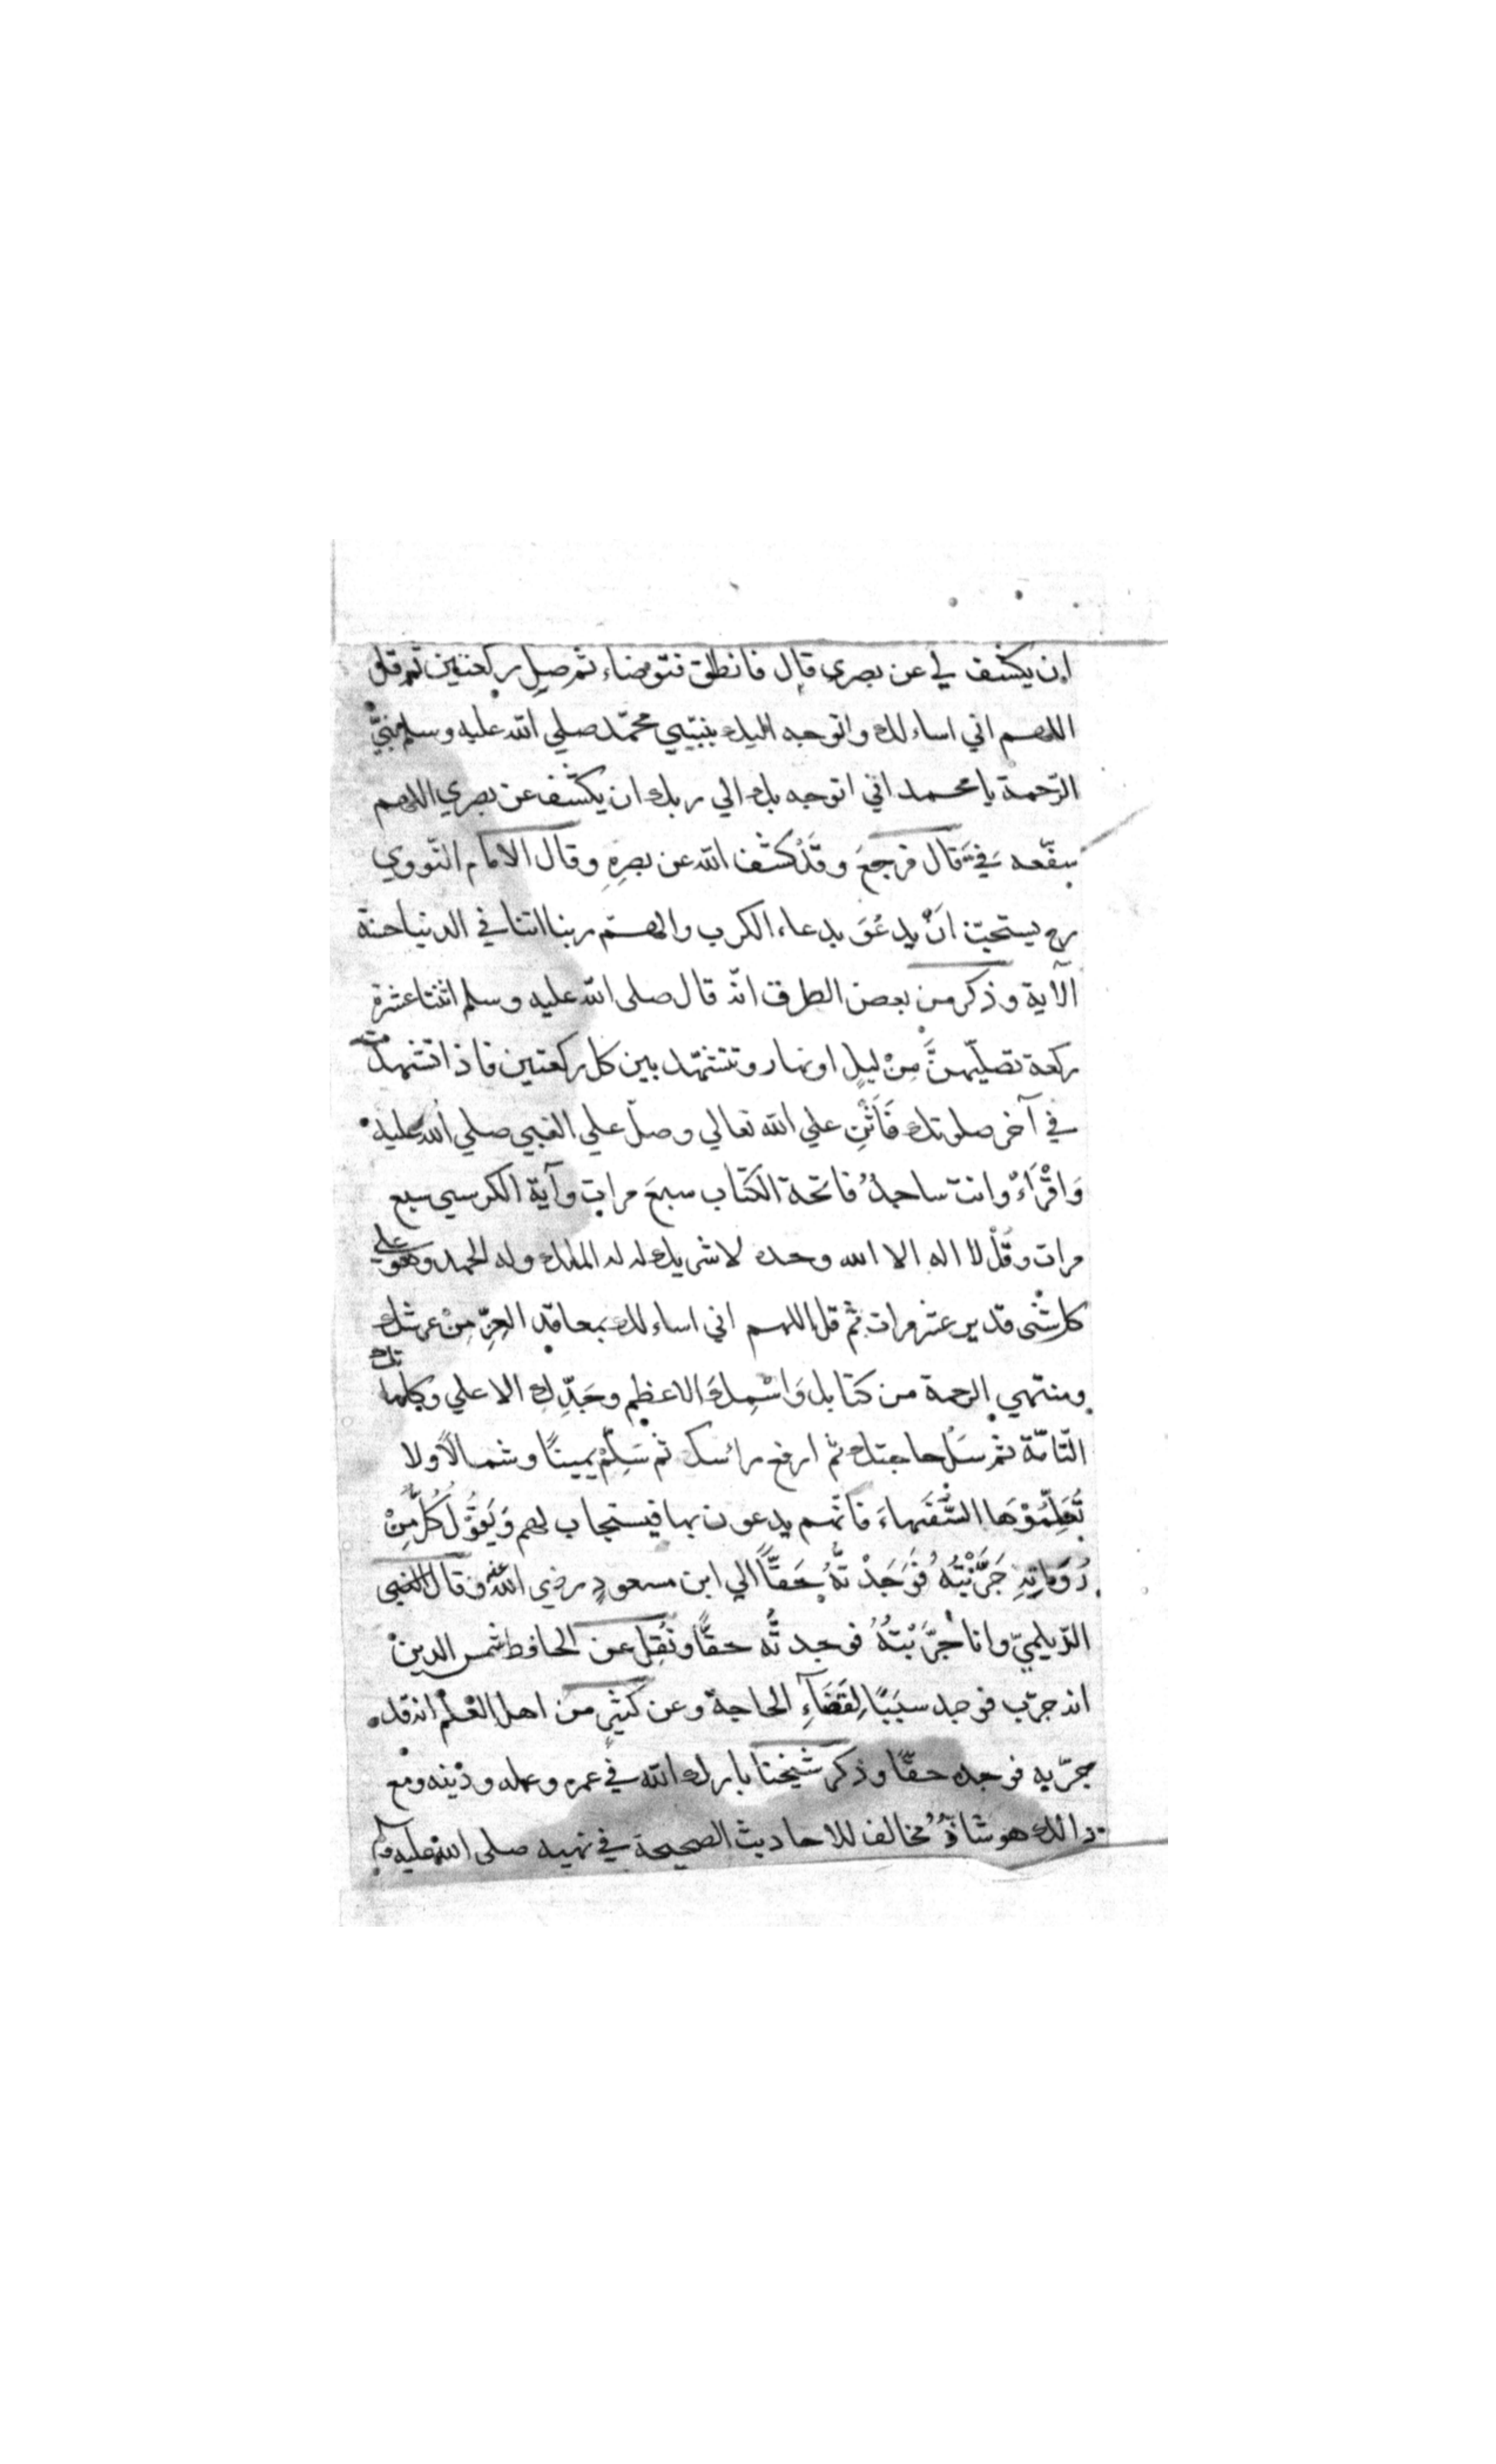 ان يكشف لي عن بصري قال فانطلق فتوضاء ثم صل ركعتين ثم قل
اللهم اني اساءلك واتوجه اليك بنبيي محمد صلي الله عليه وسلم نبيّ
الرّحمة يا محمد اني اتوجه بك الي ربك ان يكشف عن بصري اللهم
شفّعه فيّ قال فرجعَ وقَدْ كشف الله عن بصرِهِ وقال الامام النّووي
رح يستحبّ انْ يدعُوَ بدعاء الكرب واللهمّ ربنا اتنا في الدنيا حسنة
الآية وذكر من بعض الطرق انّه قال صلى الله عليه وسلم اثنتا عشرة
ركعة تصلّيهنَّ مِنْ ليلٍ او نهار وتتشهّد بين كل ركعتين فاذا تشهدت
في آخر صلوتك فَاَثْنِ علي الله تعالي وصلّ علي النبي صلي الله عليه
وَاقْرَأْ وانت ساجدٌ فاتحة الكتاب سبعَ مراتٍ وآية الكرسي سبع
مرات وقُلْ لا اله الا الله وحده لا شريك له له الملك وله الحمد وهو علي
كل شئ قدير عشر مرات ثم قل اللهم اني اساءلك بمعاقد العِزِّ مِنْ عرشك
ومنتهي الرحمة من كتابك وَاسْمِكَ الاعظم وجَدِّكَ الاعلي وكلماتك
التّامّة ثم سَلْ حاجتك ثم ارفع رائسك ثم سَلِّمْ يمينًا وشمالًا ولا
تُعَلِّمُوْهَا السُّفَهاءَ فانّهم يدعون بها فيستجاب لهم وَيَقُوْلُ كُلٌّ مِنْ
رُوَاتِهِ جَرَّبْتُهُ فَوَجَدْتُهُ حَقًّا الي ابن مسعودٍ رضي الله عنه وقال
الدّيلميّ وانا جرّبْتُهُ فوجدتُه حقًّا ونُقِل عن الحافظ شمس الدين
انه جرّب فوجد سبَبًا لِقَضَآءِ الحاجة وعن كثيرٍ من اهل العلم انه قد
جرّبه فوجده حقًّا وذكر شيخنا بارك الله في عمره وعمله ودينه ومع
ذالك هو شاذٌّ مخالف للاحاديث الصحيحة في نهيه صلى الله عليه وسلم